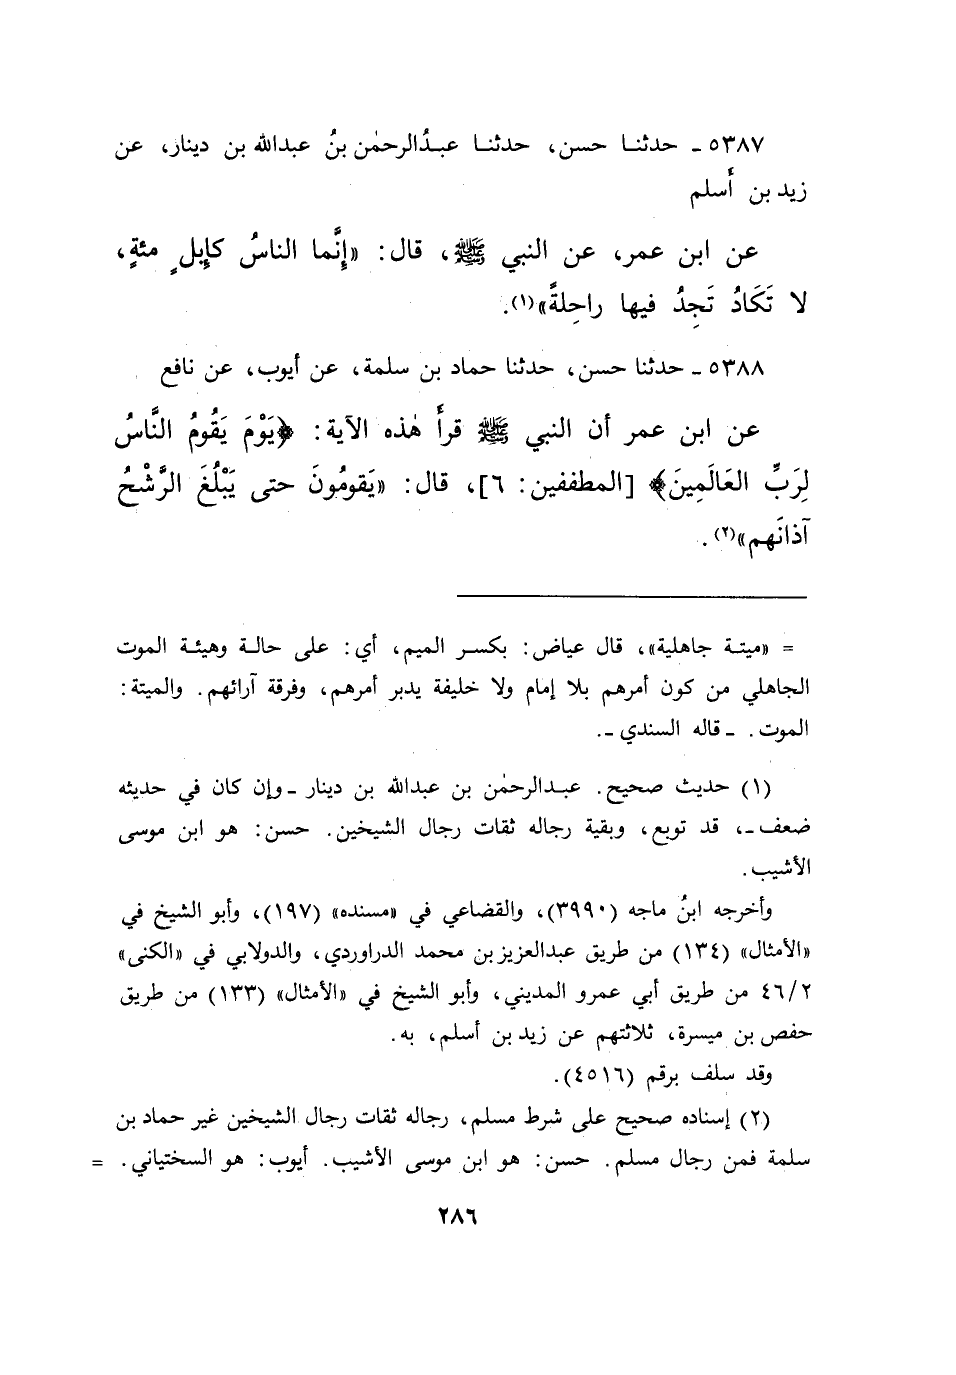 ٥٣٨٧ ـ حدثنا حسن، حدثنا عبدُالرحمٰن بنُ عبدالله بن دينار، عن
زيد بن أَسلم
عن ابن عمر، عن النبي ﷺ، قال: «إِنَّما الناسُ كإِبلٍ مئةٍ،
لا تَكَادُ تَجِدُ فيها راحِلةً»(١).
٥٣٨٨ ـ حدثنا حسن، حدثنا حماد بن سلمة، عن أيوب، عن نافع
عن ابن عمر أن النبي ﷺ قرأَ هٰذه الآية: ﴿يَوْمَ يَقُومُ النَّاسُ
لِرَبِّ العَالَمِينَ﴾ [المطففين: ٦]، قال: «يَقومُونَ حتى يَبْلُغَ الرَّشْحُ
آذانَهم»(٢).
= «ميتة جاهلية»، قال عياض: بكسر الميم، أي: على حالة وهيئة الموت
الجاهلي من كون أمرهم بلا إمام ولا خليفة يدبر أمرهم، وفرقة آرائهم. والميتة:
الموت. ـ قاله السندي ـ.
(١) حديث صحيح. عبدالرحمٰن بن عبدالله بن دينار ـ وإن كان في حديثه
ضعف ـ، قد توبع، وبقية رجاله ثقات رجال الشيخين. حسن: هو ابن موسى
الأشيب.
وأخرجه ابنُ ماجه (٣٩٩٠)، والقضاعي في «مسنده» (١٩٧)، وأبو الشيخ في
«الأمثال» (١٣٤) من طريق عبدالعزيز بن محمد الدراوردي، والدولابي في «الكنى»
٤٦/٢ من طريق أبي عمرو المديني، وأبو الشيخ في «الأمثال» (١٣٣) من طريق
حفص بن ميسرة، ثلاثتهم عن زيد بن أسلم، به.
وقد سلف برقم (٤٥١٦).
(٢) إسناده صحيح على شرط مسلم، رجاله ثقات رجال الشيخين غير حماد بن
سلمة فمن رجال مسلم. حسن: هو ابن موسى الأشيب. أيوب: هو السختياني. =
٢٨٦